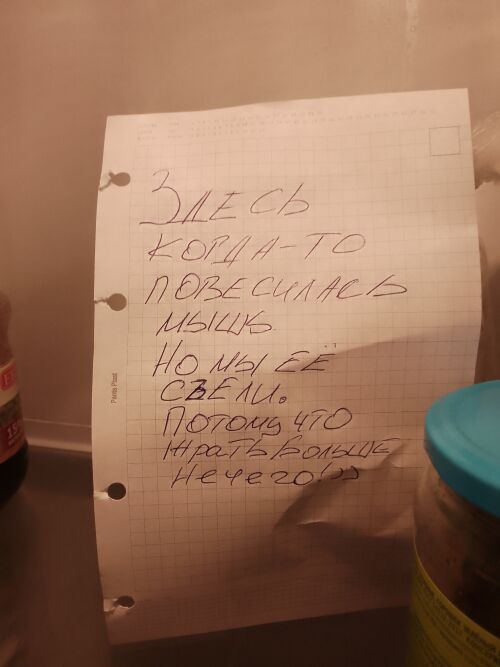 ЗДЕСЬ
КОГДА-ТО
ПОВЕСИЛАСЬ
МЫШЬ.
НО МЫ ЕЁ
СЪЕЛИ.
ПОТОМУ ЧТО
ЖРАТЬ БОЛЬШЕ
НЕЧЕГО!))